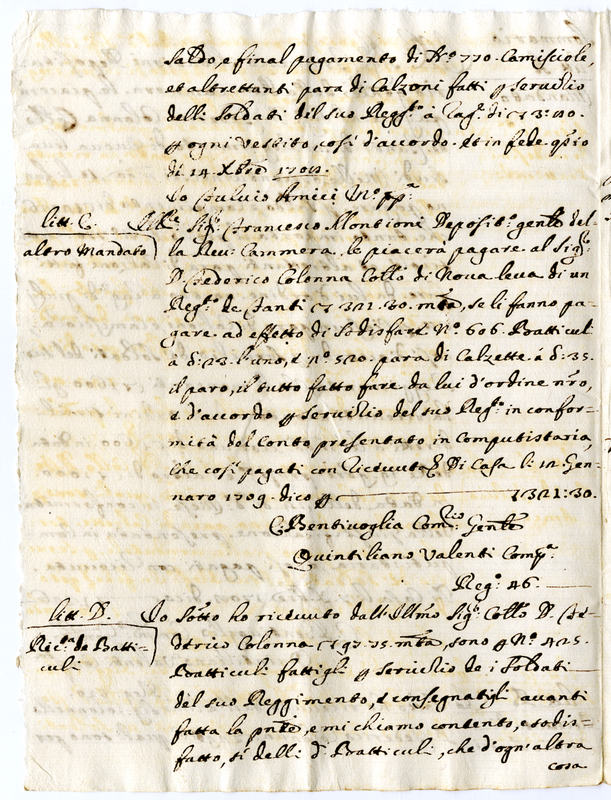 saldo, e final pagamento di Nº 770. Camisciole,
et altrettanti para di Calzoni fatti p servitio
delli soldati del suo Reggto à rag. di 3:40.
p ogni vestito, così d'accordo. Et in fede qsto
di 14 Xbre 1708.
Io Fulvio Amici Mº ppª
litt. C. Illre Sigr Francesco Montioni Deposito gente del-
altro Mandato la Reu: Cammera le piacerà pagare al Sigr
D Federico Colonna Collo di Nova leva di un
Regto de Fanti 1321.30. mta, se li fanno pa-
gare ad effetto di sodisfare Nº 606. Batticuli
à b. 23. l'uno, e nº 520. para di Calzette à b. 35.
il paro, il tutto fatto fare da lui d'ordine nro,
e d'accordo p servitio del suo Regto in confor-
mità del Conto presentato in Computistaria,
che così pagati con ricevuta Di Casa li 12. Gen-
naro 1709. dico 321:30.
C. Bentivoglia Comrio Gente
Quintiliano Valenti Compª
Regº 46.
litt. D. Io sotto ho ricevuto dall'Illmo Sigr Collo D. Fe-
Ricta de Batti- derico Colonna 97.75. mta, sono p Nº 425.
culi Batticuli fattigli p servitio de i soldati
del suo Reggimento, e consegnatigli avanti
fatta la pnte, e mi chiamo contento, e sodis-
fatto, sì delli d. Batticuli, che d'ogn'altra
cosa